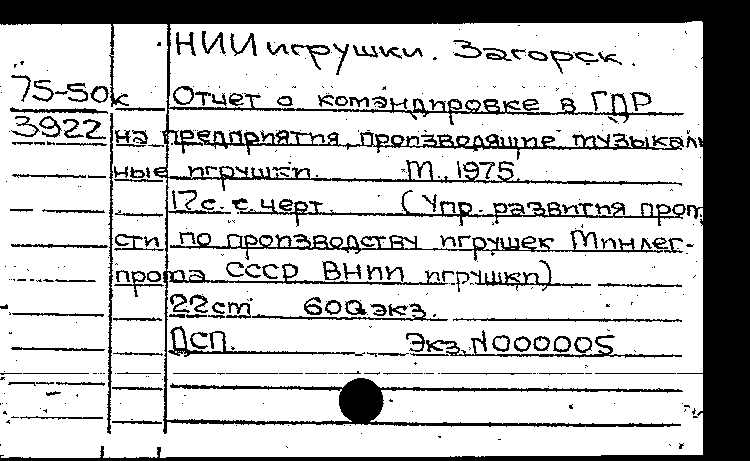 НИИ игрушки. Загорск.
75-50к Отчет о командировке в ГДР
3922 на предприятия, производящие музыкаль
ные игрушки. М., 1975.
17с. с черт. (Упр. развития пром
сти по производству игрушек Минлег-
прома СССР ВНИИ игрушки)
22см 600экз.
ДСП. Экз.N000005